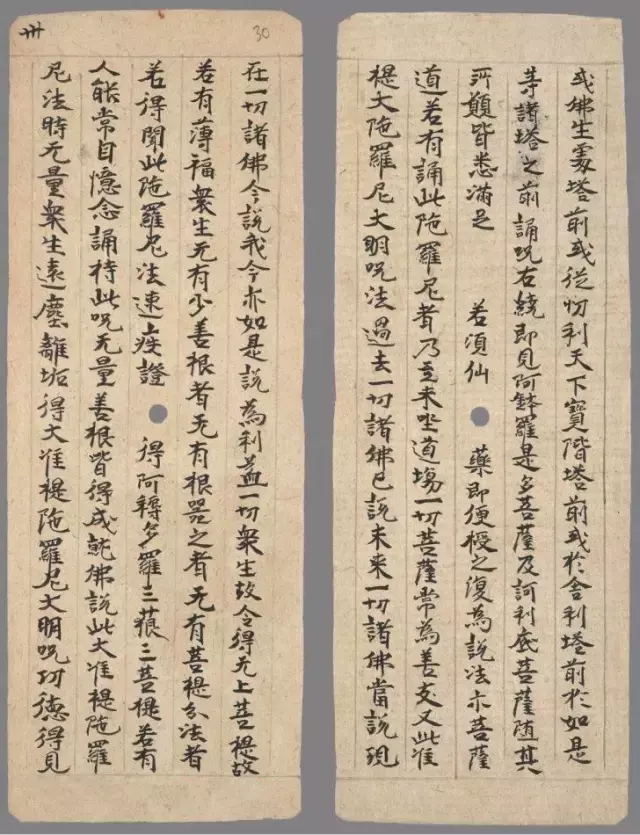 或佛生處塔前或從忉利天下寶階塔前或於舍利塔前於如是
等諸塔之前誦呪右繞即見阿鉢羅是多菩薩及訶利底菩薩随其
所願皆悉滿足 若湏仙 藥即便授之復為說法示菩薩
道若有誦此陁羅尼者乃至未坐道塲一切菩薩常為善友又此准
提大陁羅尼大明呪法過去一切諸佛已說未来一切諸佛當說現
30
卌
在一切諸佛今說我今亦如是說為利益一切衆生故令得无上菩提故
若有薄福衆生无有少善根者无有根器之者无有菩提分法者
若得聞此陁羅尼法速疾證 得阿耨多羅三藐三菩提若有
人能常自憶念誦持此呪无量善根皆得成就佛說此大准提陁羅
尼法時无量衆生遠塵離垢得大准提陁羅尼大明呪功德得見